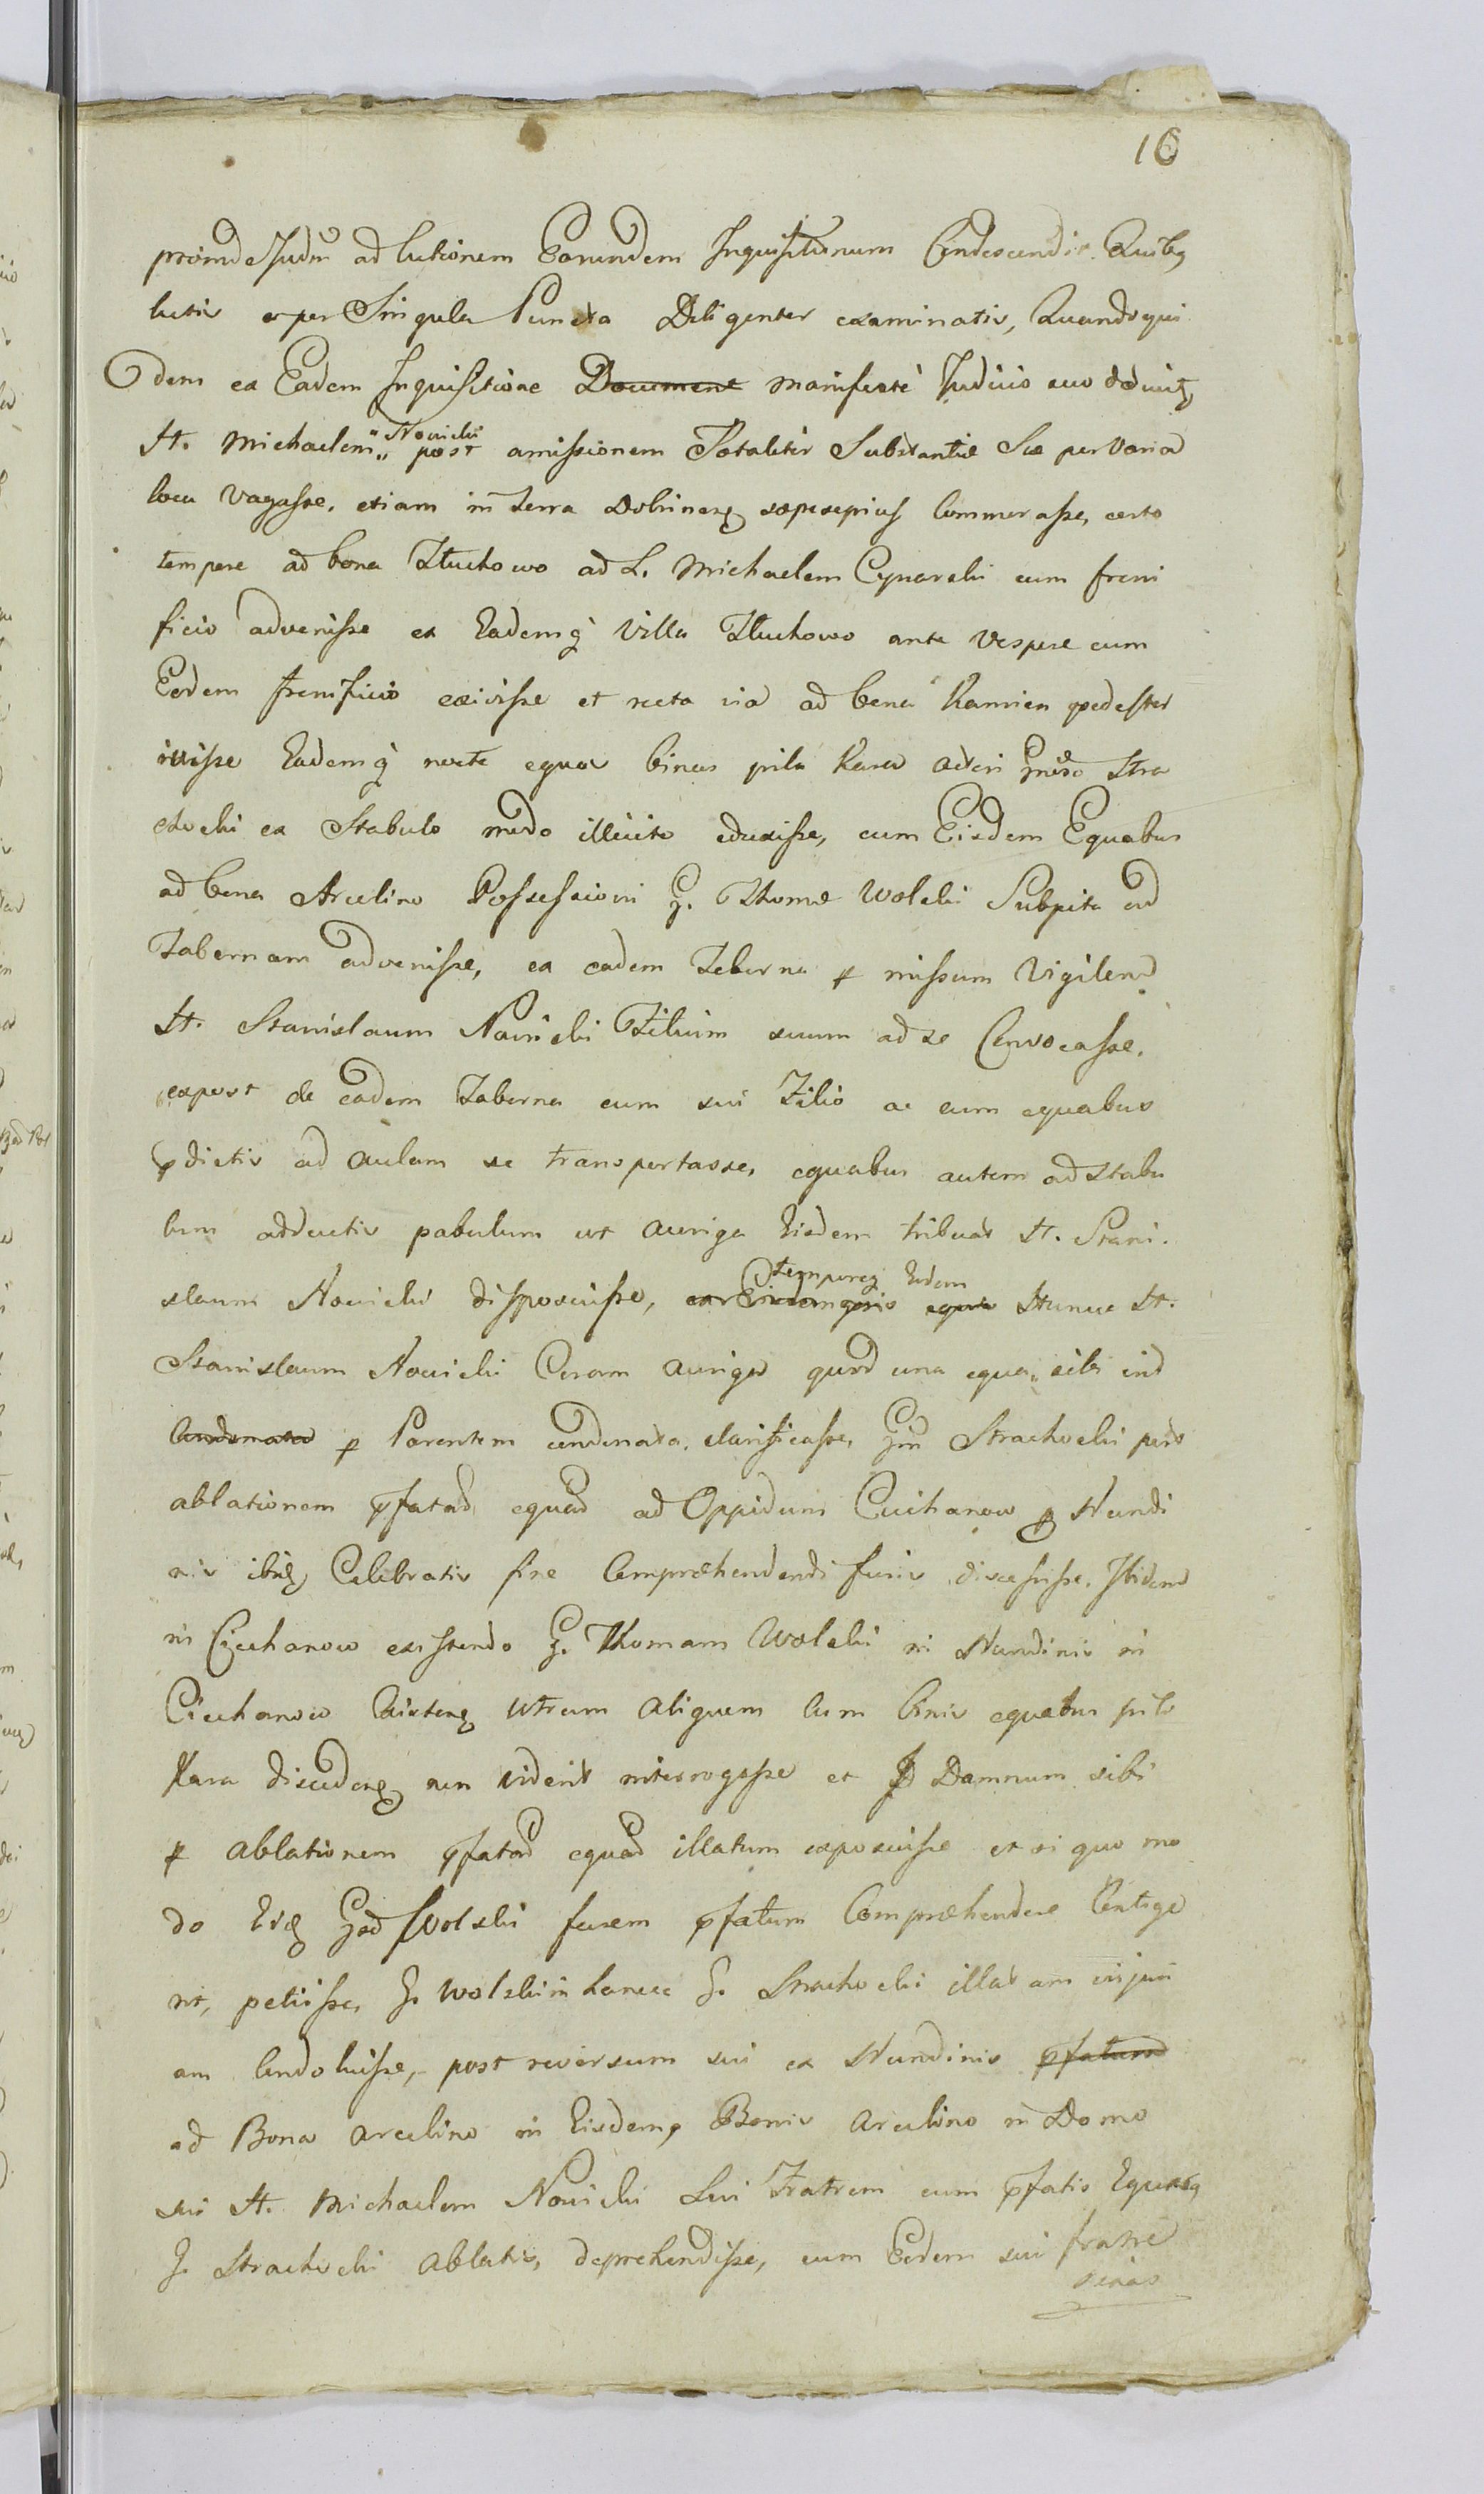 16
proinde Judm ad lutionem Earundem Inquisitionum Condescendit. Quibq
lutis et per Singula Puncta Diligenter examinatis, Quandoqui
dem ex Eadem Inquisitione Document manifeste Judicio suo
St. Michaelem Novicki post amissionem Totaliter Substantiæ Suæ per Varia
loca Vagasse, etiam in terra Dobrinen sæpesepius Commorasse, certo
tempore ad bona Tłuchowo ad L. Michaelem Cynarski cum freni
ficio advenisse ex Eademq Villa Tłuchowo ante Vespere cum
Eodem frenificio exivisse et recta via ad bona Kamien pedester
ivisse Eademq nocte equas binas pila Kara Stra
chocki ex Stabulo modo illicito eduxisse, cum Eisdem Equabus
ad bona Arcelino Possessioni G. Thomæ Wolski Subpita ad
Tabernam advenisse, ex eadem Taberna p missum Vigilem
St. Stanislaum Novicki Filium suum ad se Convocasse,
expost de eadem Taberna cum sui Filio ac cum equabus
pdictis ad aulam se transportasse, equabus autem ad stabu
lum adductis pabulum ut auriga Eisdem tribuat St. Stani
slaum Novicki disposuisse, temporeq Eodem Hunc St.
Stanislaum Novicki Coram auriga quod una equa sibi
condonata p Parentem condonata, clarificasse, Gm Strachocki post
ablationem pfatad equad ad Oppidum Ciechanow p Nundi
nis ibiq Celebratis fine Compræhendendi furis discessisse. Ibidem
in Ciechanow existendo G. Thomam Wolski in Nundinis in
Ciechanow existenq utrum aliquem cum binis equabus pilo
Kara discedenq non viderit interrogasse et Damnum sibi
p ablationem pfatad equad illatum exposuisse et si quo mo
do Wolski furem pfatum Compræhendere Contige
rit, petiisse, G. Wolski hance G. Strachocki illatam injuri
am Condoluisse, post reversum sui ex Nundinis pfatum
ad Bona Arcelino in Eisdemq Bonis Arcelino in Domo
sui St. Michaelem Novicki Sui Fratrem cum pfatis Equabq
G. Strachocki ablatis, deprehendisse, cum Eodem sui fratre